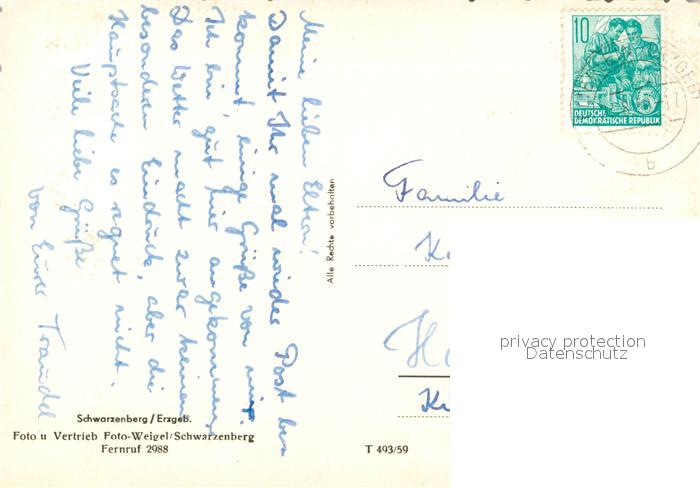 Meine lieben Eltern!
Damit Ihr mal wieder Post be-
kommt, einige Grüße von mir.
Ich bin gut hier angekommen,
Das Wetter macht zwar keinen
besonderen Eindruck, aber die
Hauptsache es regnet nicht.
Viele liebe Grüße
von Eurer Traudel
Schwarzenberg / Erzgeb.
Foto u Vertrieb Foto-Weigel/Schwarzenberg
Fernruf 2988
Alle Rechte vorbehalten
T 493/59
10
DEUTSCHE
DEMOKRATISCHE REPUBLIK
b
Familie
privacy protection
Datenschutz